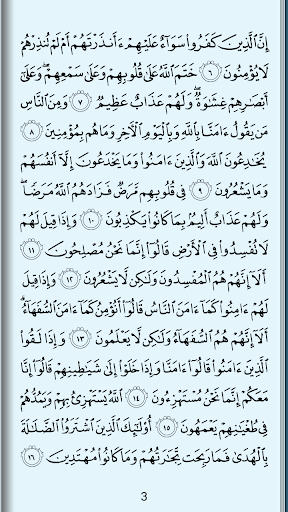 إِنَّ ٱلَّذِينَ كَفَرُوا۟ سَوَآءٌ عَلَيْهِمْ ءَأَنذَرْتَهُمْ أَمْ لَمْ تُنذِرْهُمْ
لَا يُؤْمِنُونَ ٦ خَتَمَ ٱللَّهُ عَلَىٰ قُلُوبِهِمْ وَعَلَىٰ سَمْعِهِمْ ۖ وَعَلَىٰٓ
أَبْصَٰرِهِمْ غِشَٰوَةٌ ۖ وَلَهُمْ عَذَابٌ عَظِيمٌ ٧ وَمِنَ ٱلنَّاسِ
مَن يَقُولُ ءَامَنَّا بِٱللَّهِ وَبِٱلْيَوْمِ ٱلْءَاخِرِ وَمَا هُم بِمُؤْمِنِينَ ٨
يُخَٰدِعُونَ ٱللَّهَ وَٱلَّذِينَ ءَامَنُوا۟ وَمَا يَخْدَعُونَ إِلَّآ أَنفُسَهُمْ
وَمَا يَشْعُرُونَ ٩ فِى قُلُوبِهِم مَّرَضٌ فَزَادَهُمُ ٱللَّهُ مَرَضًا ۖ
وَلَهُمْ عَذَابٌ أَلِيمٌۢ بِمَا كَانُوا۟ يَكْذِبُونَ ١٠ وَإِذَا قِيلَ لَهُمْ
لَا تُفْسِدُوا۟ فِى ٱلْأَرْضِ قَالُوٓا۟ إِنَّمَا نَحْنُ مُصْلِحُونَ ١١
أَلَآ إِنَّهُمْ هُمُ ٱلْمُفْسِدُونَ وَلَٰكِن لَّا يَشْعُرُونَ ١٢ وَإِذَا قِيلَ
لَهُمْ ءَامِنُوا۟ كَمَآ ءَامَنَ ٱلنَّاسُ قَالُوٓا۟ أَنُؤْمِنُ كَمَآ ءَامَنَ ٱلسُّفَهَآءُ ۗ
أَلَآ إِنَّهُمْ هُمُ ٱلسُّفَهَآءُ وَلَٰكِن لَّا يَعْلَمُونَ ١٣ وَإِذَا لَقُوا۟
ٱلَّذِينَ ءَامَنُوا۟ قَالُوٓا۟ ءَامَنَّا وَإِذَا خَلَوْا۟ إِلَىٰ شَيَٰطِينِهِمْ قَالُوٓا۟ إِنَّا
مَعَكُمْ إِنَّمَا نَحْنُ مُسْتَهْزِءُونَ ١٤ ٱللَّهُ يَسْتَهْزِئُ بِهِمْ وَيَمُدُّهُمْ
فِى طُغْيَٰنِهِمْ يَعْمَهُونَ ١٥ أُو۟لَٰٓئِكَ ٱلَّذِينَ ٱشْتَرَوُا۟ ٱلضَّلَٰلَةَ
بِٱلْهُدَىٰ فَمَا رَبِحَت تِّجَٰرَتُهُمْ وَمَا كَانُوا۟ مُهْتَدِينَ ١٦
3